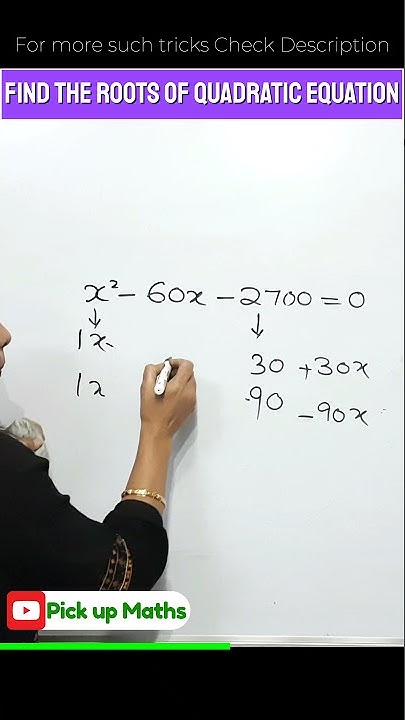 For more such tricks Check Description
FIND THE ROOTS OF QUADRATIC EQUATION
x² - 60x - 2700 = 0
↓ ↓
1x
30 +30x
1x
90 -90x
Pick up Maths